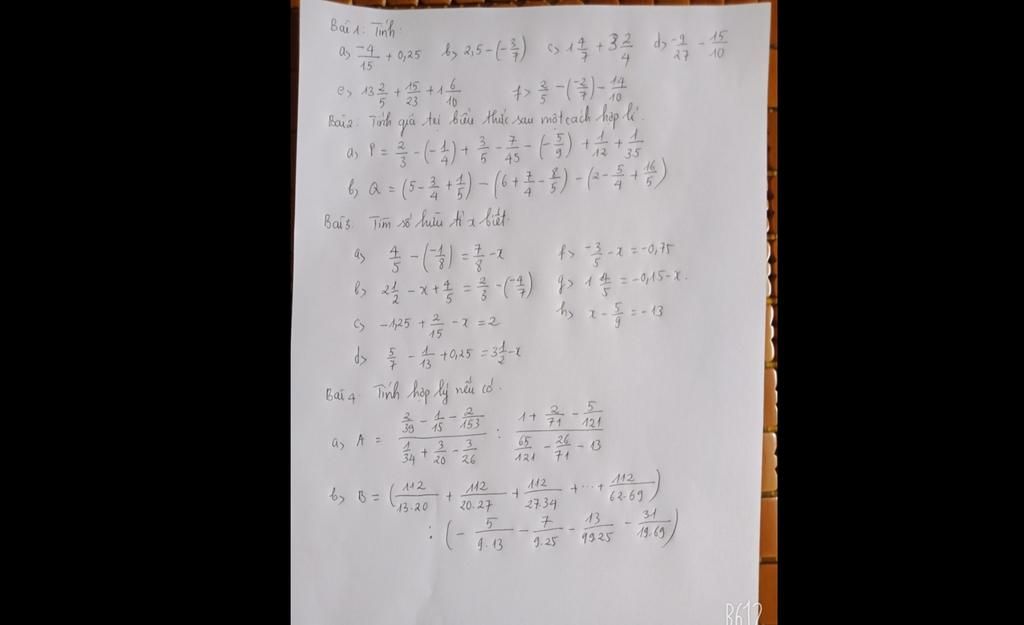 Bài 1: Tính:
a) \frac{-4}{15} + 0,25 b) 2,5 - (-\frac{3}{7}) c) 1\frac{4}{7} + 3\frac{2}{4} d) \frac{-9}{27} - \frac{15}{10}
e) 13\frac{2}{5} + \frac{15}{23} + 1\frac{6}{10} f) \frac{2}{5} - (\frac{-2}{7}) - \frac{14}{10}
Bài 2: Tính giá trị biểu thức sau một cách hợp lí.
a) P = \frac{2}{3} - (-\frac{1}{4}) + \frac{3}{5} - \frac{7}{45} - (-\frac{5}{9}) + \frac{1}{12} + \frac{1}{35}
b) Q = (5 - \frac{3}{4} + \frac{1}{5}) - (6 + \frac{7}{4} - \frac{8}{5}) - (2 - \frac{5}{4} + \frac{16}{5})
Bài 3. Tìm số hữu tỉ x biết.
a) \frac{4}{5} - (\frac{-1}{8}) = \frac{7}{8} - x f) \frac{-3}{5} - x = -0,75
b) 2\frac{1}{2} - x + \frac{4}{5} = \frac{2}{3} - (\frac{-4}{7}) g) 1\frac{4}{5} = -0,15 - x.
c) -1,25 + \frac{2}{15} - x = 2 h) x - \frac{5}{9} = -13
d) \frac{5}{7} - \frac{1}{13} + 0,25 = 3\frac{1}{2} - x
Bài 4 Tính hợp lý nếu có.
a) A = \frac{\frac{2}{39} - \frac{1}{15} - \frac{2}{153}}{\frac{1}{34} + \frac{3}{20} - \frac{3}{26}} : \frac{1 + \frac{2}{71} - \frac{5}{121}}{\frac{65}{121} - \frac{26}{71} - 13}
b) B = (\frac{112}{13.20} + \frac{112}{20.27} + \frac{112}{27.34} + ... + \frac{112}{62.69})
: (- \frac{5}{9.13} - \frac{7}{9.25} - \frac{13}{9925} - \frac{31}{19.69})
B612